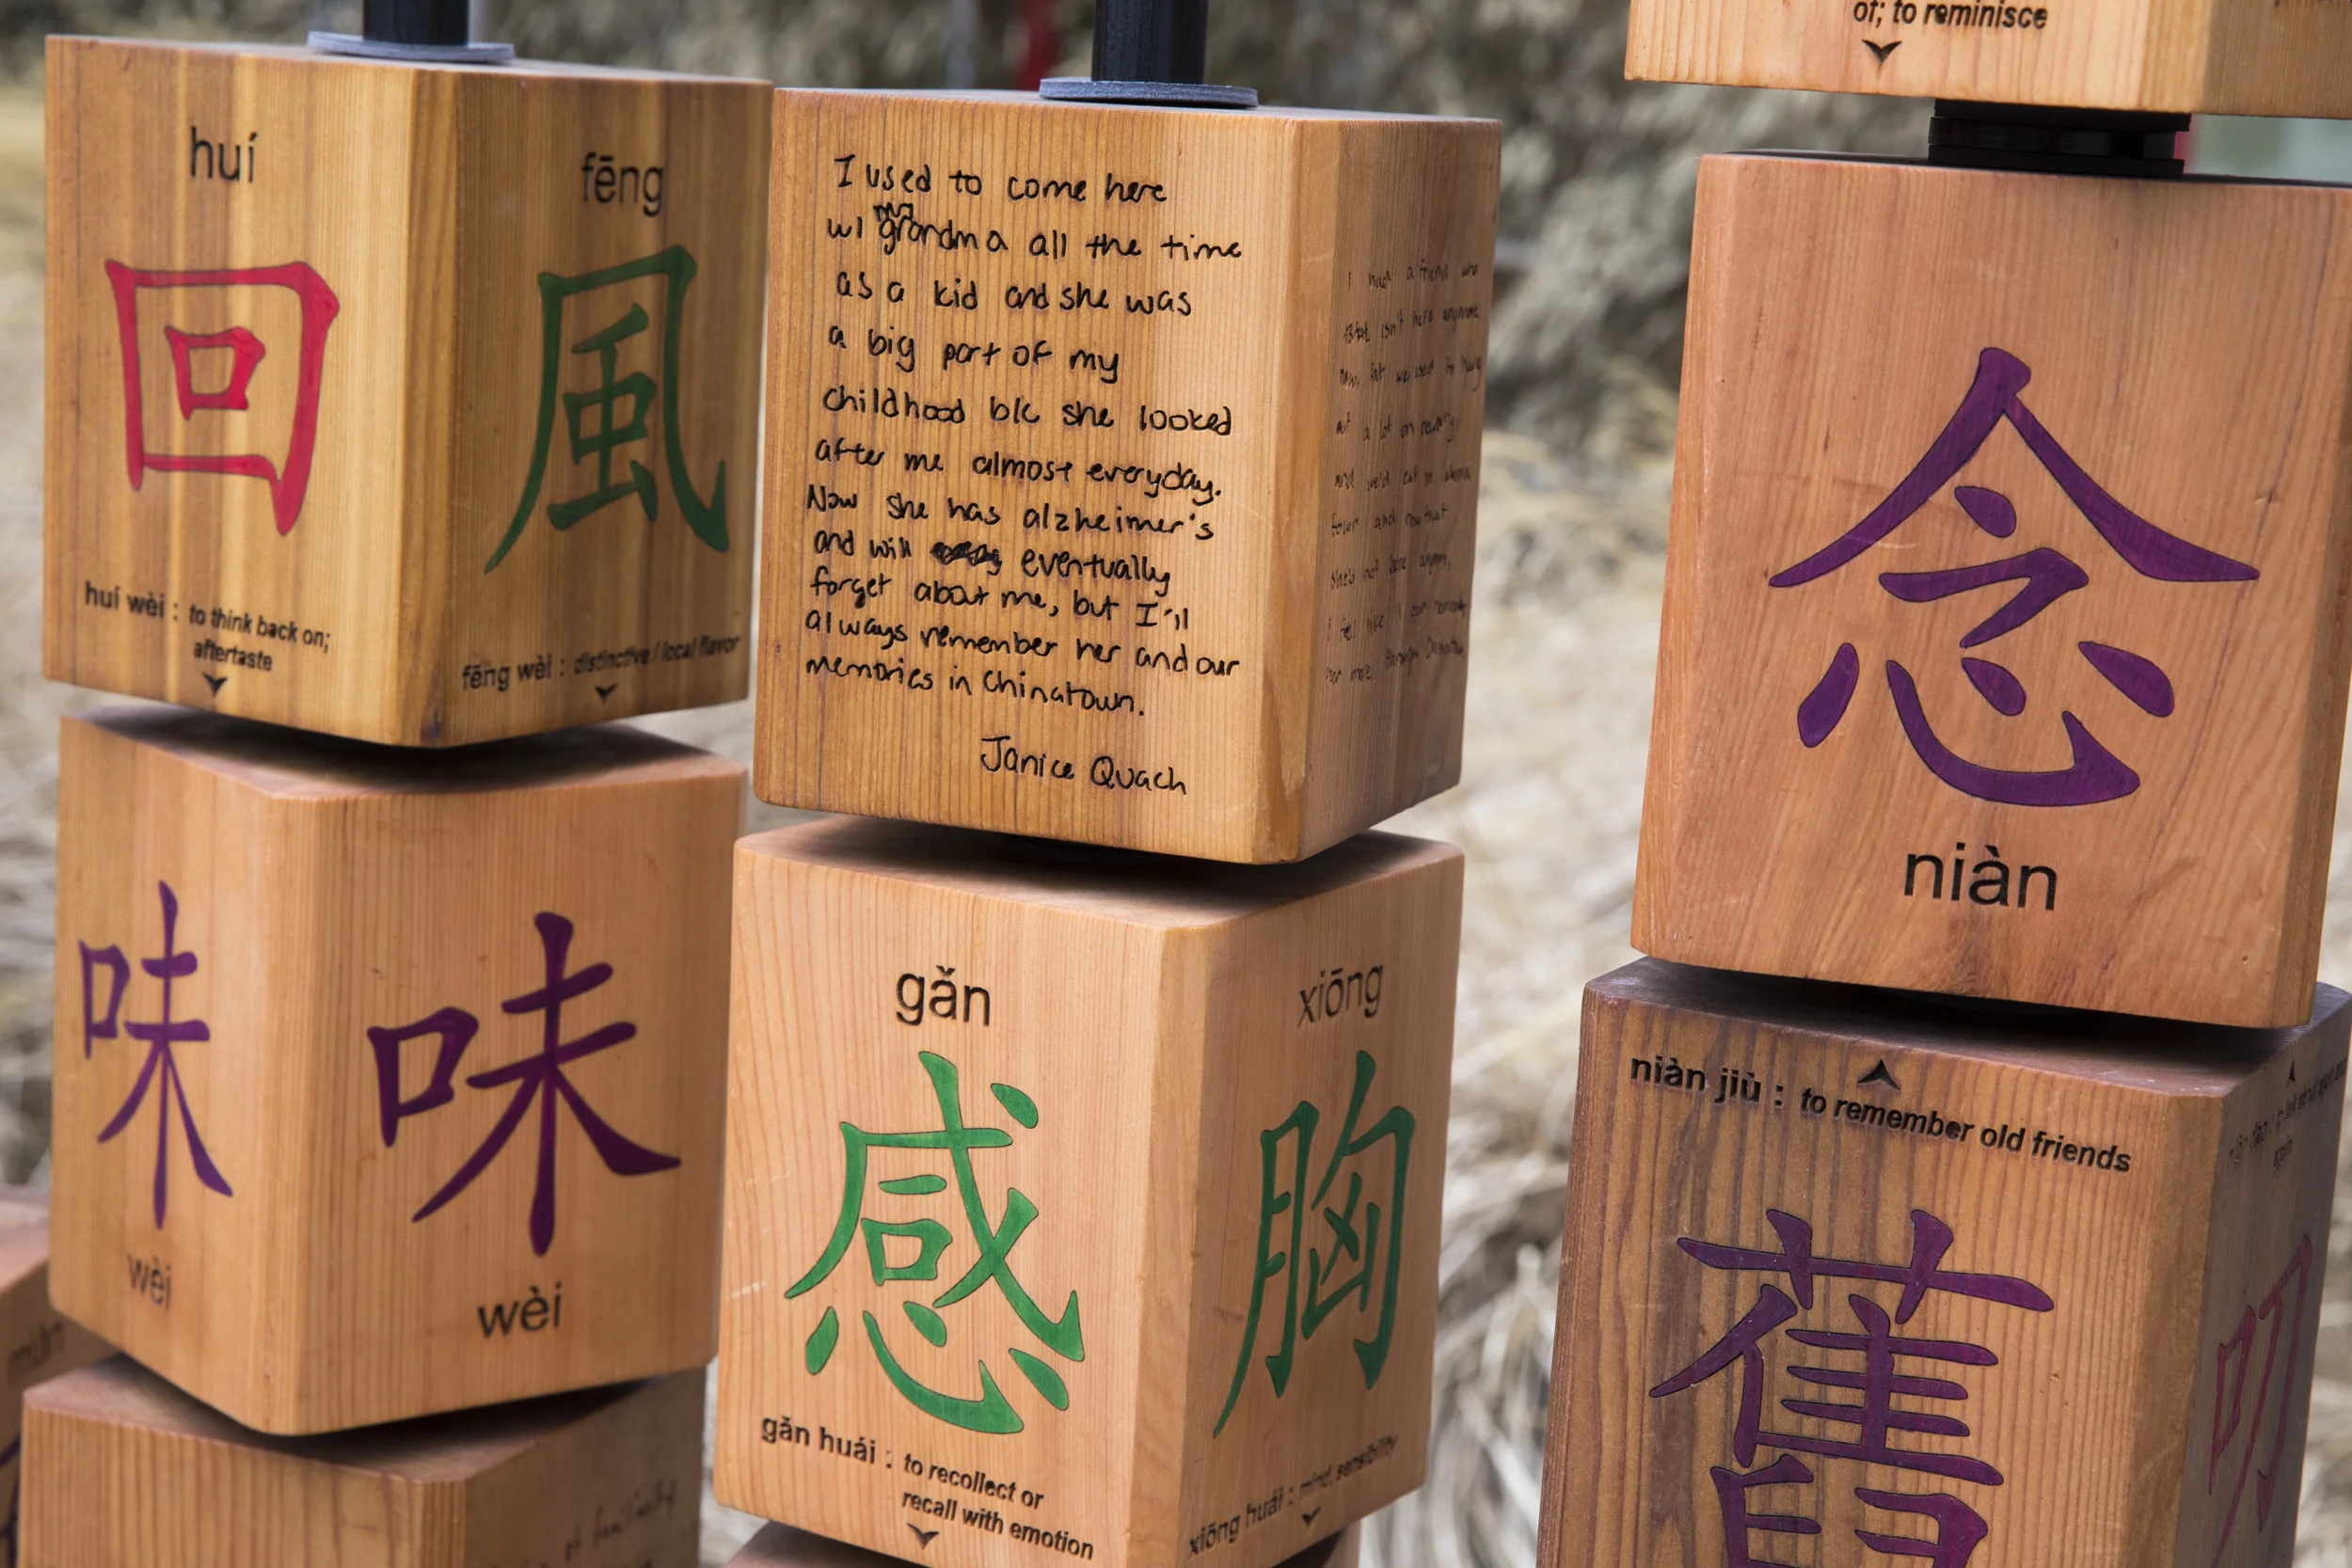 huí
回
huí wèi : to think back on;
aftertaste
fēng
風
fēng wèi : distinctive / local flavor
味
wèi
味
wèi
I used to come here
w/ my grandma all the time
as a kid and she was
a big part of my
childhood b/c she looked
after me almost everyday.
Now she has alzheimer's
and will eventually
forget about me, but I'll
always remember her and our
memories in Chinatown.
Janice Quach
I had a friend who
isn't here anymore
we used to hang
a lot on
and we'd eat
town and now that
she's not here
I feel like I can
more through
gǎn
感
gǎn huái : to recollect or
recall with emotion
xiōng
胸
xiōng huái : mind, sensibility
of; to reminisce
念
niàn
niàn jiù : to remember old friends
舊
叨
of familiarity